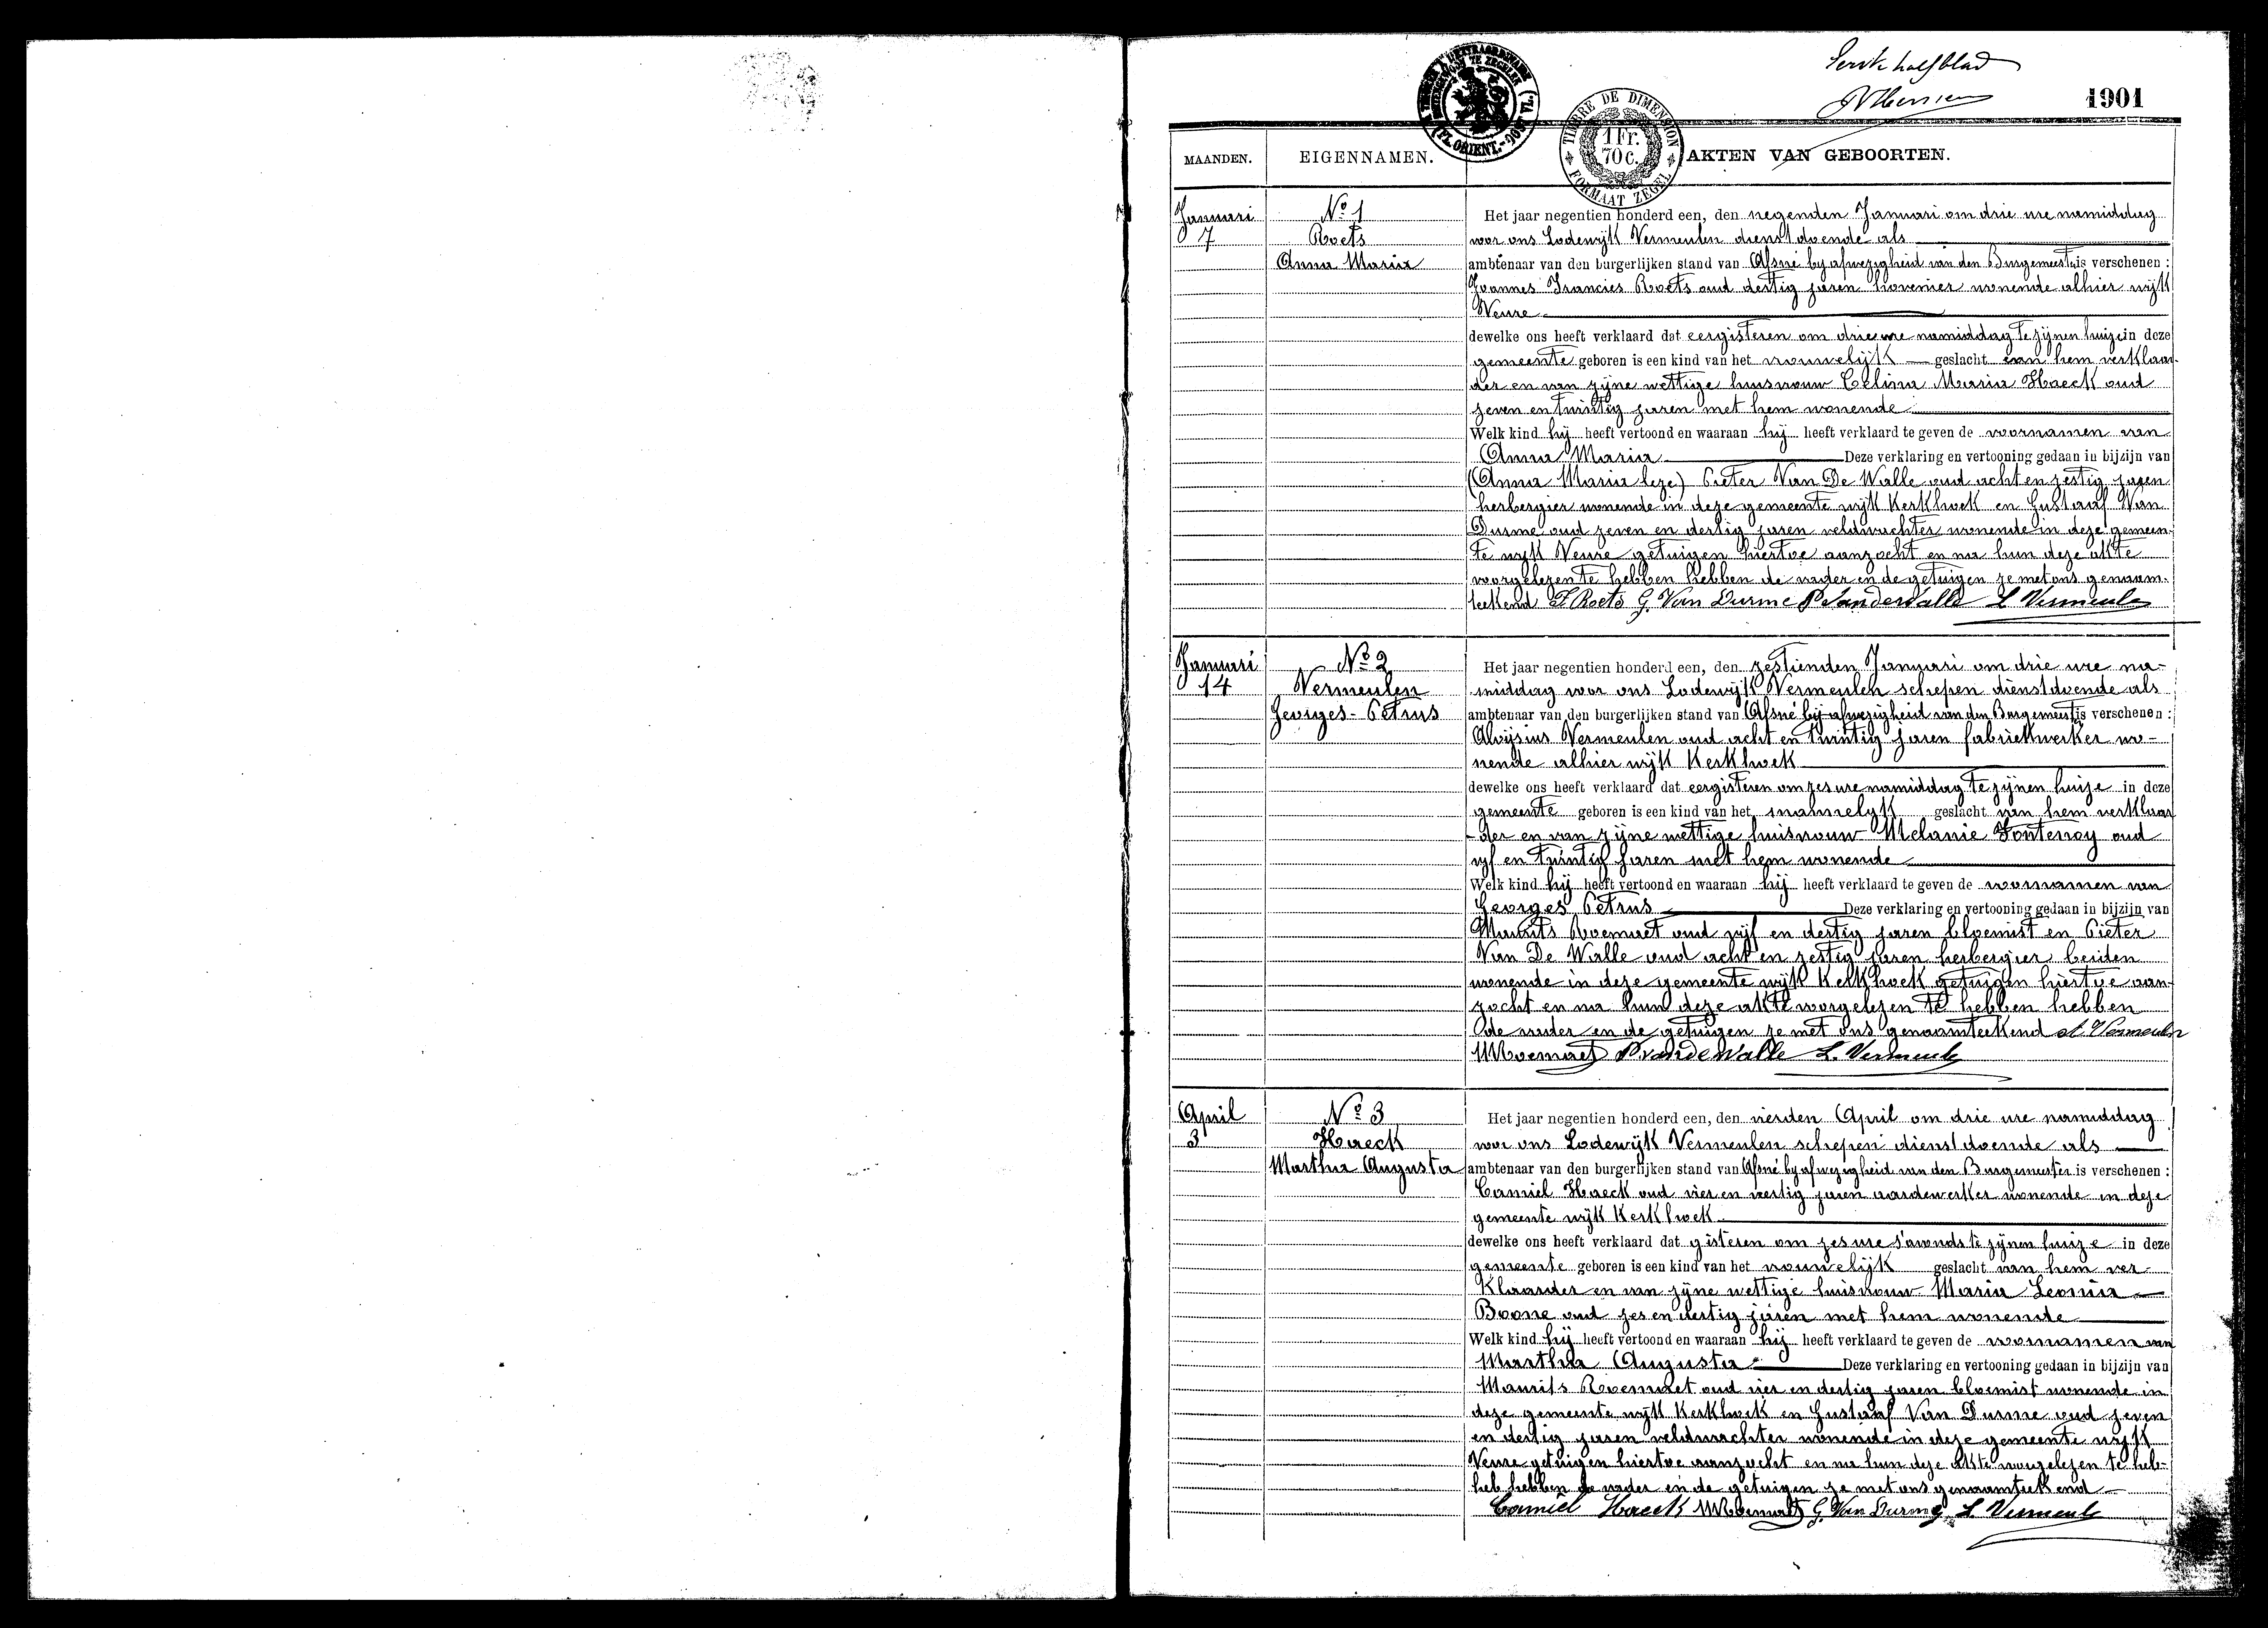 halfblad
1901
TIMBRE DE DIMENSION
1 Fr.
70 c.
FORMAAT ZEGEL
MAANDEN. EIGENNAMEN. AKTEN VAN GEBOORTEN.
Januari
7
No 1
Roets
Anna Maria
Het jaar negentien honderd een, den negenden Januari om drie ure namiddag
voor ons Lodewijk Vermeulen dienstdoende als
ambtenaar van den burgerlijken stand van Afsné bij afwezigheid van den Burgemeester is verschenen :
Joannes Francies Roets oud dertig jaren hovenier wonende alhier wijk
Veure
dewelke ons heeft verklaard dat eergisteren om drie ure namiddag te zijnen huize in deze
gemeente geboren is een kind van het vrouwelijk geslacht van hem verklaar-
der en van zijne wettige huisvrouw Celina Maria Haeck oud
zeven en twintig jaren met hem wonende
Welk kind hij heeft vertoond en waaraan hij heeft verklaard te geven de voornamen van
Anna Maria Deze verklaring en vertooning gedaan in bijzijn van
(Anna Maria leze) Pieter Van De Walle oud acht en zestig jaren
herbergier wonende in deze gemeente wijk Kerkhoek en Gustaaf Van
Durme oud zeven en dertig jaren veldwachter wonende in deze gemeen-
te wijk Veure getuigen hiertoe aanzocht en na hun deze akte
voorgelezen te hebben hebben de vader en de getuigen ze met ons genaam-
teekend F Roets G. Van Durme P Vandewalle L Vermeulen
Januari
14
No 2
Vermeulen
Georges-Petrus
Het jaar negentien honderd een, den zestienden Januari om drie ure na-
middag voor ons Lodewijk Vermeulen schepen dienstdoende als
ambtenaar van den burgerlijken stand van Afsné bij afwezigheid van den Burgemeester is verschenen :
Aloijsius Vermeulen oud acht en twintig jaren fabriekwerker wo-
nende alhier wijk Kerkhoek
dewelke ons heeft verklaard dat eergisteren om zes ure namiddag te zijnen huize in deze
gemeente geboren is een kind van het mannelyk geslacht van hem verklaar
der en van zijne wettige huisvrouw Melanie Fonteney oud
vijf en twintig jaren met hem wonende
Welk kind hij heeft vertoond en waaraan hij heeft verklaard te geven de voornamen van
Georges Petrus Deze verklaring en vertooning gedaan in bijzijn van
Maurits Roemaet oud vijf en dertig jaren bloemist en Pieter
Van De Walle oud acht en zestig jaren herbergier beiden
wonende in deze gemeente wijk Kerkhoek getuigen hiertoe aan-
zocht en na hun deze akte voorgelezen te hebben hebben
de vader en de getuigen ze met ons genaamteekend A. Vermeulen
M Roemaet P. vandeWalle L. Vermeulen
April
3
No 3
Haeck
Martha Augusta
Het jaar negentien honderd een, den vierden April om drie ure namiddag
voor ons Lodewijk Vermeulen schepen dienstdoende als
ambtenaar van den burgerlijken stand van Afsné bij afwezigheid van den Burgemeester is verschenen :
Camiel Haeck oud vier en veertig jaren aardewerker wonende in deze
gemeente wijk Kerkhoek
dewelke ons heeft verklaard dat gisteren om zes ure s'avonds te zijnen huize in deze
gemeente geboren is een kind van het vrouwelijk geslacht van hem ver
klaarder en van zijne wettige huisvrouw Maria Leonia
Boone oud zes en dertig jaren met hem wonende
Welk kind hij heeft vertoond en waaraan hij heeft verklaard te geven de voornamen van
Martha Augusta Deze verklaring en vertooning gedaan in bijzijn van
Maurits Roemaet oud vier en dertig jaren bloemist wonende in
deze gemeente wijk Kerkhoek en Gustaaf Van Durme oud zeven
en dertig jaren veldwachter wonende in deze gemeente wijk
Veure getuigen hiertoe aanzocht en na hun deze akte voorgelezen te heb-
heb hebben de vader en de getuigen ze met ons genaamteekend
Camiel Haeck M Roemaet G. Van Durme L. Vermeulen